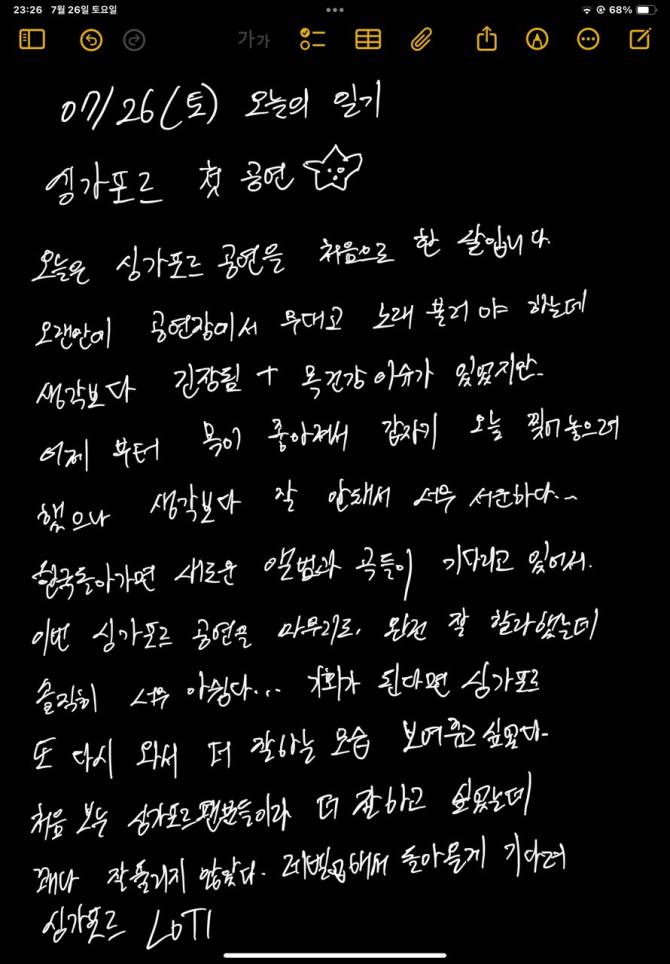 23:26 7월 26일 토요일
68%
가가
07/26(토) 오늘의 일기
싱가포르 첫 공연
오늘은 싱가포르 공연을 처음으로 한 날입니다.
오랜만에 공연장에서 무대고 노래 불러 야 했는데
생각보다 긴장됨 + 목건강 이슈가 있었지만.
어제 부터 목이 좋아져서 갑자기 오늘 찢어놓으려
했으나 생각보다 잘 안돼서 너무 서운하다...
한국돌아가면 새로운 앨범과 곡들이 기다리고 있어서.
이번 싱가포르 공연을 마무리로, 완전 잘 할라했는데
솔직히 너무 아쉽다... 기회가 된다면 싱가포르
또 다시 와서 더 잘하는 모습 보여주고 싶었다.
처음 보는 싱가포르팬분들이라 더 잘하고 싶었는데
꽤나 잘풀리지 않았다. 레벨업해서 돌아올게 기다려
싱가포르 LOTI